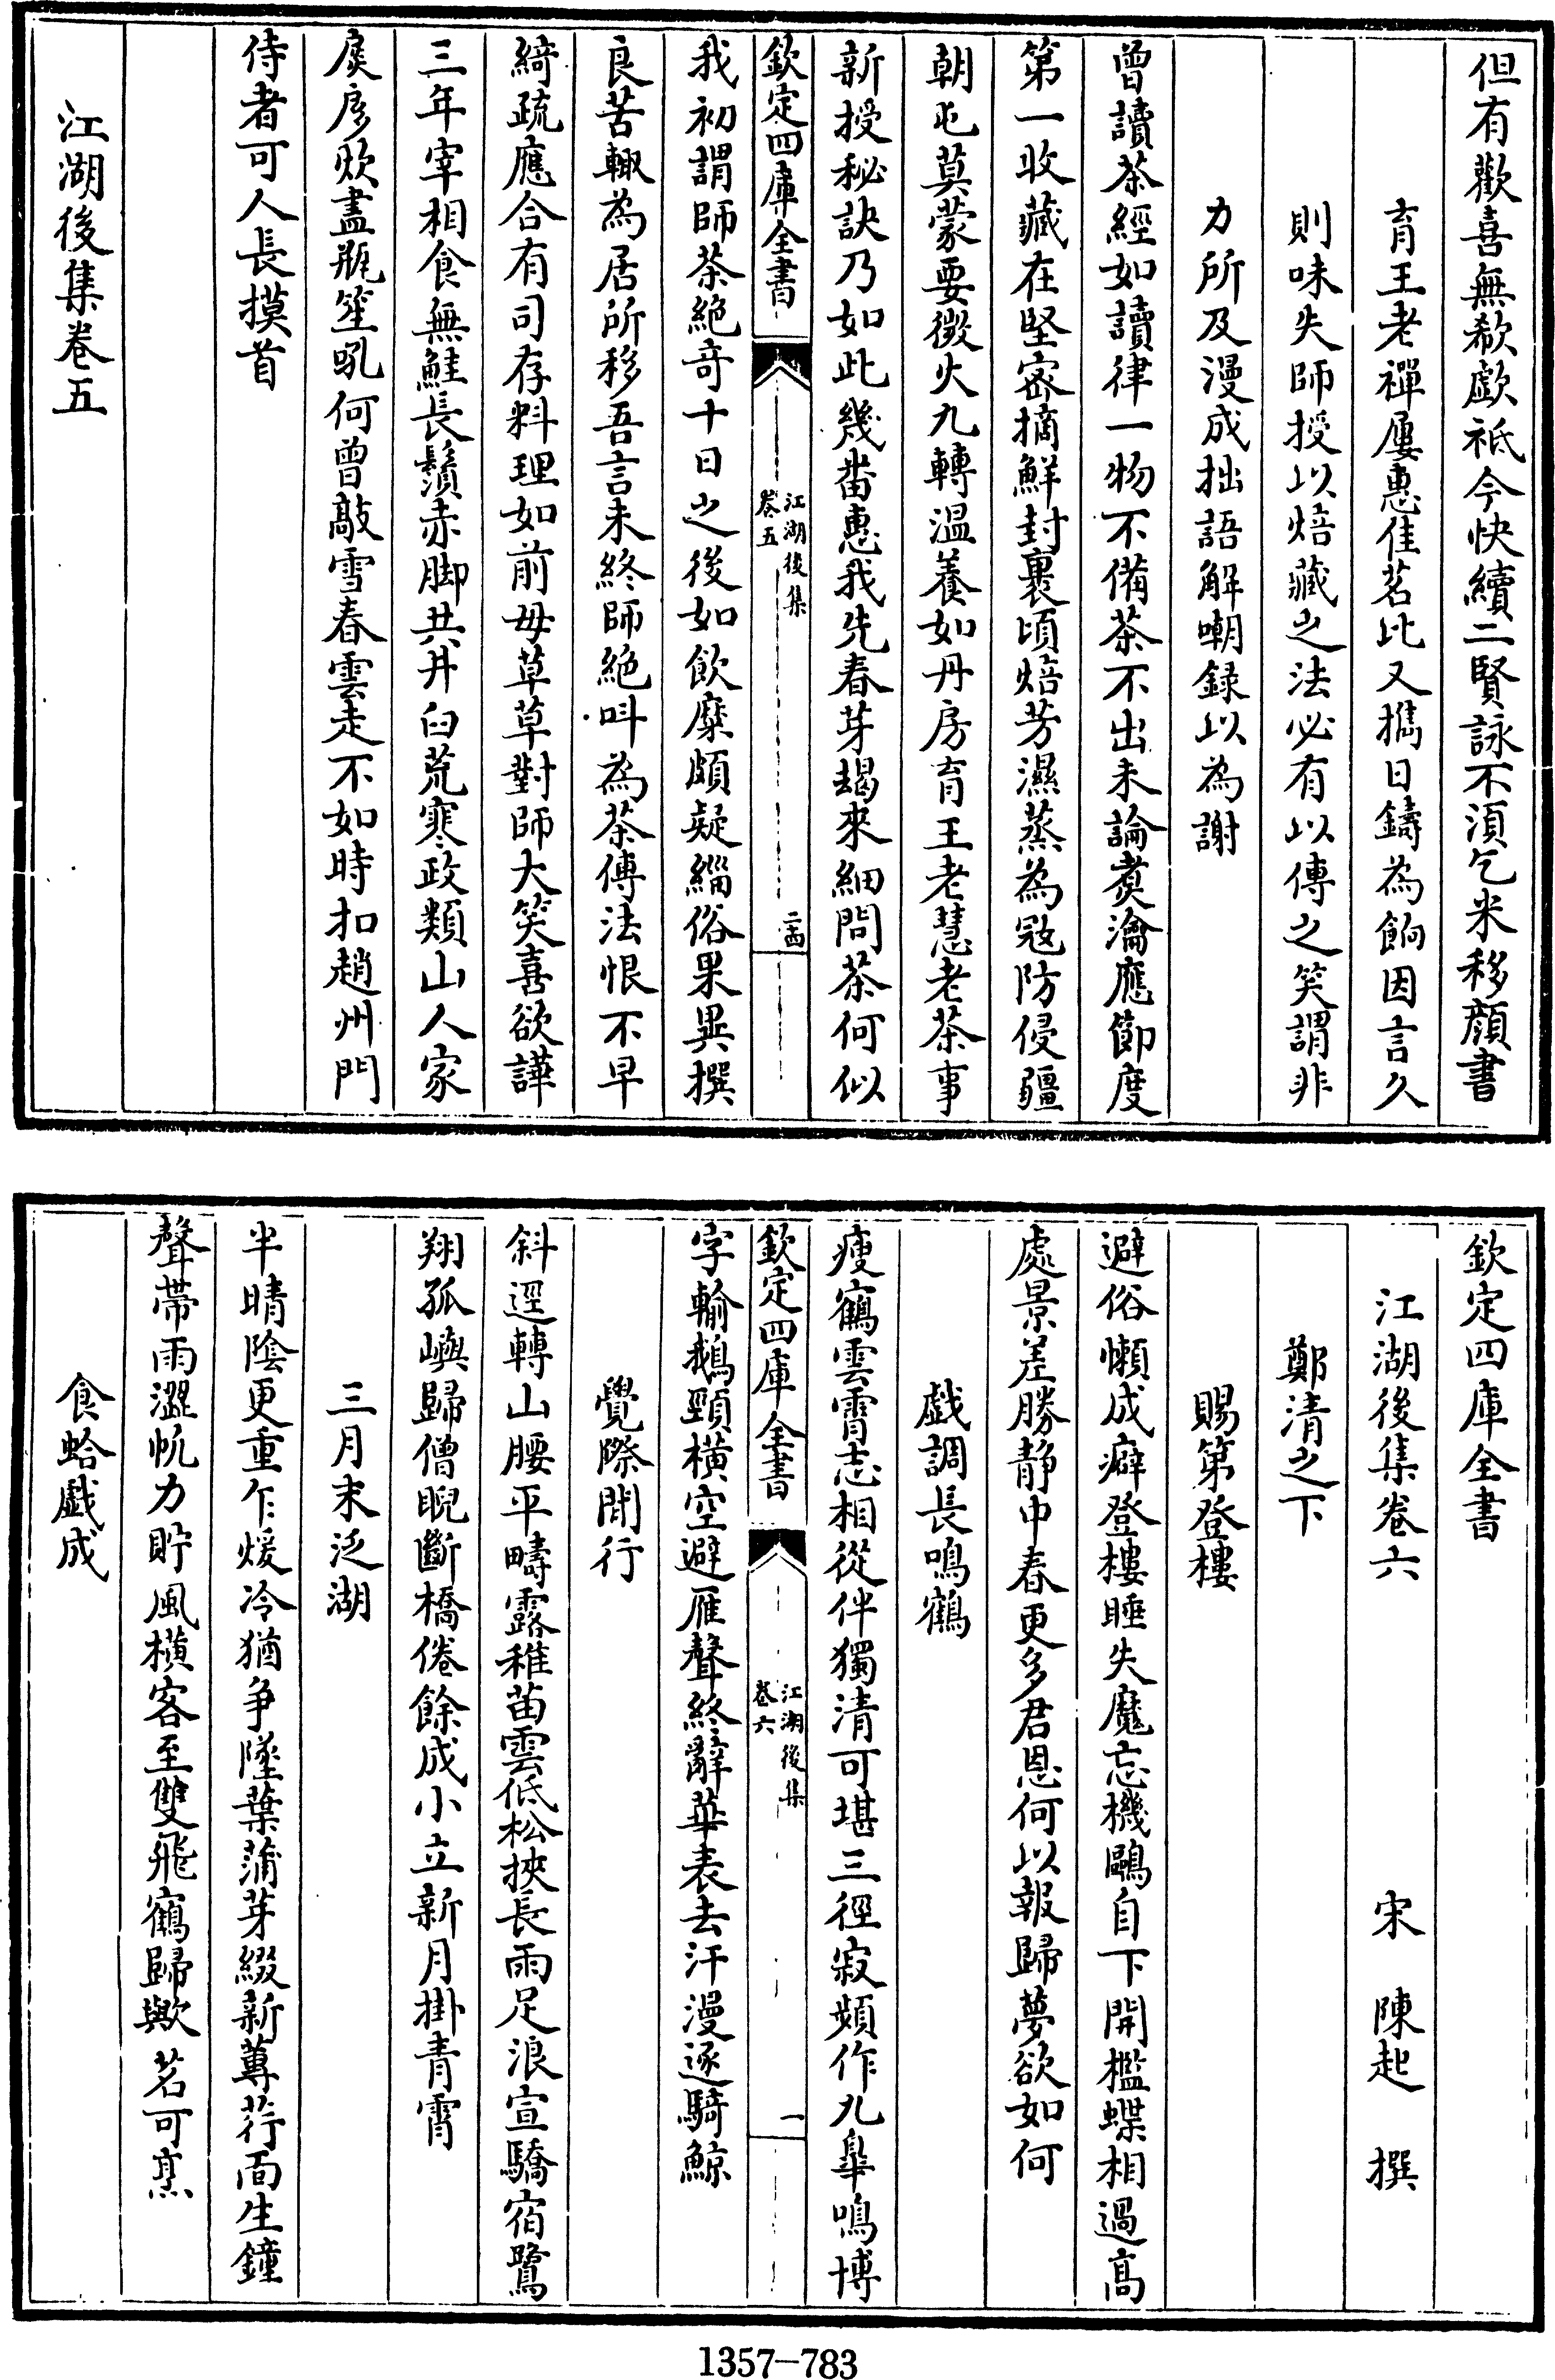 但有歡喜無欷歔祗今快續二賢詠不須乞米移顔書
育王老禪屢惠佳茗比又擕日鑄為餉因言久
則味失師授以焙藏之法必有以傳之笑謂非
力所及漫成拙語解嘲録以為謝
曾讀茶經如讀律一物不備茶不出未論煑瀹應節度
第一收藏在堅宻摘鮮封裹須焙芳濕蒸為宼防侵疆
朝屯莫蒙要微火九轉温養如丹房育王老慧老茶事
新授秘訣乃如此幾畨惠我先春芽朅來細問茶何似
欽定四庫全書
江湖後集
卷五
二十四
我初謂師茶絶竒十日之後如飲糜頗疑緇俗果異撰
良苦輙為居所移吾言未終師絶呌為茶傳法恨不早
綺疏應合有司存料理如前毋草草對師大笑喜欲譁
三年宰相食無鮭長鬚赤脚共井臼荒寒政類山人家
扊扅炊盡瓶笙吼何曾敲雪春雲走不如時扣趙州門
侍者可人長摸首
江湖後集卷五
欽定四庫全書
江湖後集卷六 宋 陳起 撰
鄭清之下
賜第登樓
避俗懶成癖登樓睡失魔忘機鷗自下開檻蝶相過髙
處景差勝静中春更多君恩何以報歸夢欲如何
戯調長鳴鶴
瘦鶴雲霄志相從伴獨清可堪三徑寂頻作九臯鳴博
欽定四庫全書
江湖後集
卷六
一
字輸鵝頸横空避雁聲終辭華表去汗漫逐騎鯨
覺際閒行
斜逕轉山腰平疇露稚苗雲低松挾長雨足浪宣驕宿鷺
翔孤嶼歸僧睨斷橋倦餘成小立新月掛青霄
三月末泛湖
半晴陰更重乍煖冷猶争墜葉蒲芽綴新蓴荇面生鐘
聲帶雨澀帆力貯風横客至雙飛鶴歸歟茗可烹
食蛤戯成
1357-783